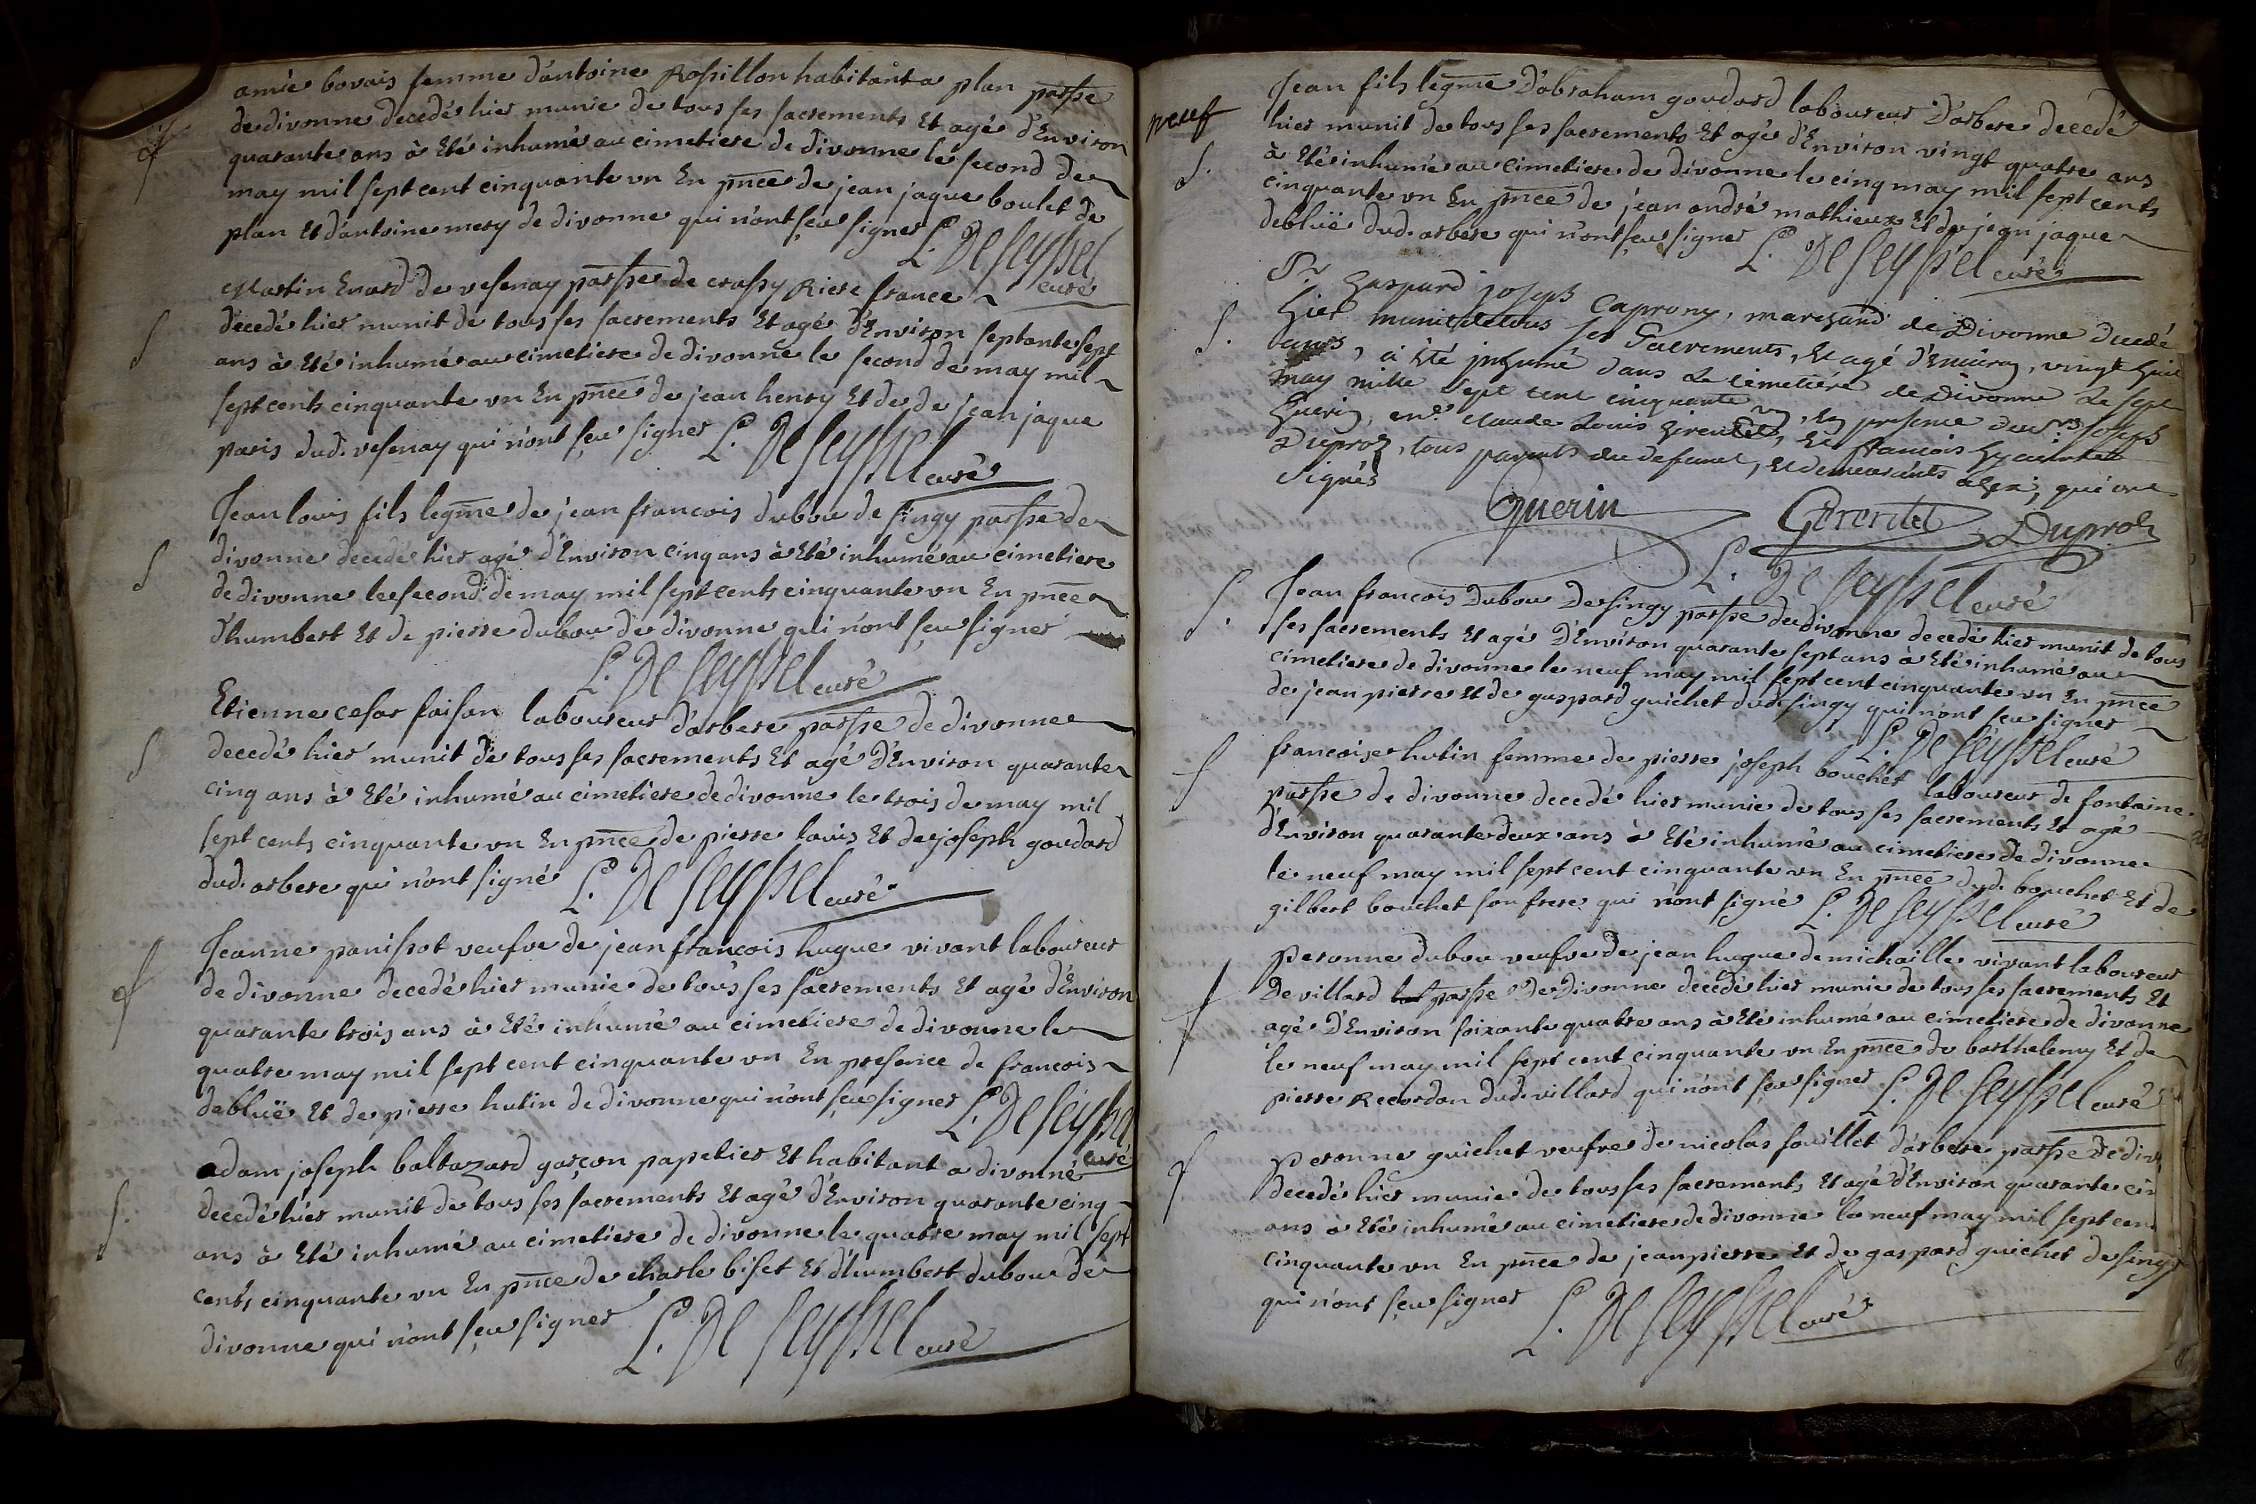 amie bovais femme d'antoine Rossillon habitant a plan parsse
de divonne decedé hier munie de tous ses sacrements Et agé d'Environ
quarante ans à Eté inhumé au cimetiere de divonne le second de
may mil sept cent cinquante un En pnce de jean jaque boulet de
plan Et d'antoine mery de divonne qui n'ont sçu signer L. De Seyssel
curé
Martin Enard de vesenay parsse de crassy Riere france
decedé hier munit de tous ses sacrements Et agé d'Environ septante sept
ans à Eté inhumé au cimetiere de divonne le second de may mil
sept cents cinquante un En pnce de jean henry Et de de jean jaque
paris dud. vesenay qui n'ont sçu signer L. De Seyssel curé
Jean louis fils legme de jean francois dubou de singy parsse de
divonne decedé hier agé d'Environ cinq ans à Eté inhumé au cimetiere
de divonne le second de may mil sept cents cinquante un En pnce
d'humbert Et de pierre dubou de divonne qui n'ont sçu signer
L. De Seyssel curé
Etienne cesar faisan laboureur d'arbere parsse de divonne
decedé hier munit de tous ses sacrements Et agé d'Environ quarante
cinq ans à Eté inhumé au cimetiere de divonne le trois de may mil
sept cents cinquante un En pnce de pierre louis Et de joseph goudard
dud. arbere qui n'ont signé L. De Seyssel curé
Jeanne panissot veufve de jean francois hugue vivant laboureur
de divonne decedé hier munie de tous ses sacrements Et agé d'Environ
quarante trois ans à Eté inhumé au cimetiere de divonne le
quatre may mil sept cent cinquante un En presence de francois
debluë Et de pierre hutin de divonne qui n'ont sçu signer L. De Seyssel
curé
adam joseph baltazard garçon papetier Et habitant a divonne
decedé hier munit de tous ses sacrements Et agé d'Environ quarante cinq
ans à Eté inhumé au cimetiere de divonne le quatre may mil sept
cents cinquante un En pnce de charle biset Et d'humbert dubou de
divonne qui n'ont sçu signer L. De Seyssel curé
neuf
Jean fils legme d'abraham goudard laboureur d'arbere decedé
hier munit de tous ses sacrements Et agé d'Environ vingt quatre ans
à Eté inhumé au cimetiere de divonne le cinq may mil sept cents
cinquante un En pnce de jean andré mathieux Et de jean jaque
debluë dud. arbere qui n'ont sçu signer L. De Seyssel curé
Sr gaspard joseph Caprony, marchand de Divonne decedé
hier munit de tous ses Sacrements, Et agé d'Enuiron, vingt huit
ans, à Eté inhumé dans Le Cimetiére de Divonne Le sept
may mille Sept cent cinquante un, En presence des Srs Joseph
Guerin, Claude Louis Girerdet, Et francois hyacinthe
Duproz, tous parents du defunt, Et demeurants a Gex, qui ont
signés
Guerin Girerdet Duproz
L. De Seyssel curé
Jean francois Dubou De singy parsse de divonne decedé hier munit de tous
ses sacrements Et agé D'Environ quarante sept ans à Eté inhumé au
cimetiere de divonne le neuf may mil sept cent cinquante un En pnce
de jean pierre Et de gaspard guichet dud. singy qui n'ont sçu signer
L. De Seyssel curé
francoise hutin femme de pierre joseph bouchet laboureur de fontaine
parsse de divonne decedé hier munie de tous ses sacrements Et agé
d'Environ quarante deux ans à Eté inhumé au cimetiere de divonne
le neuf may mil sept cent cinquante un En pnce dud. bouchet Et de
gilbert bouchet son frere qui n'ont signé L. De Seyssel curé
peronne dubou veufve de jean hugue de michaille vivant laboureur
De villard parsse De Divonne decedé hier munie de tous ses sacrements Et
agé D'Environ soixante quatre ans à Eté inhumé au cimetiere de divonne
le neuf may mil sept cent cinquante un En pnce de barthelemy Et de
pierre Recordon dud. villard qui n'ont sçu signer L. De Seyssel curé
peronne guichet veufve de nicolas fouillet d'arbere parsse De div
decedé hier munie de tous ses sacrements Et agé d'Environ quarante cin
ans à Eté inhumé au cimetiere de divonne le neuf may mil sept cen
cinquante un En pnce de jean pierre Et de gaspard guichet de singy
qui n'ont sçu signer L. De Seyssel curé